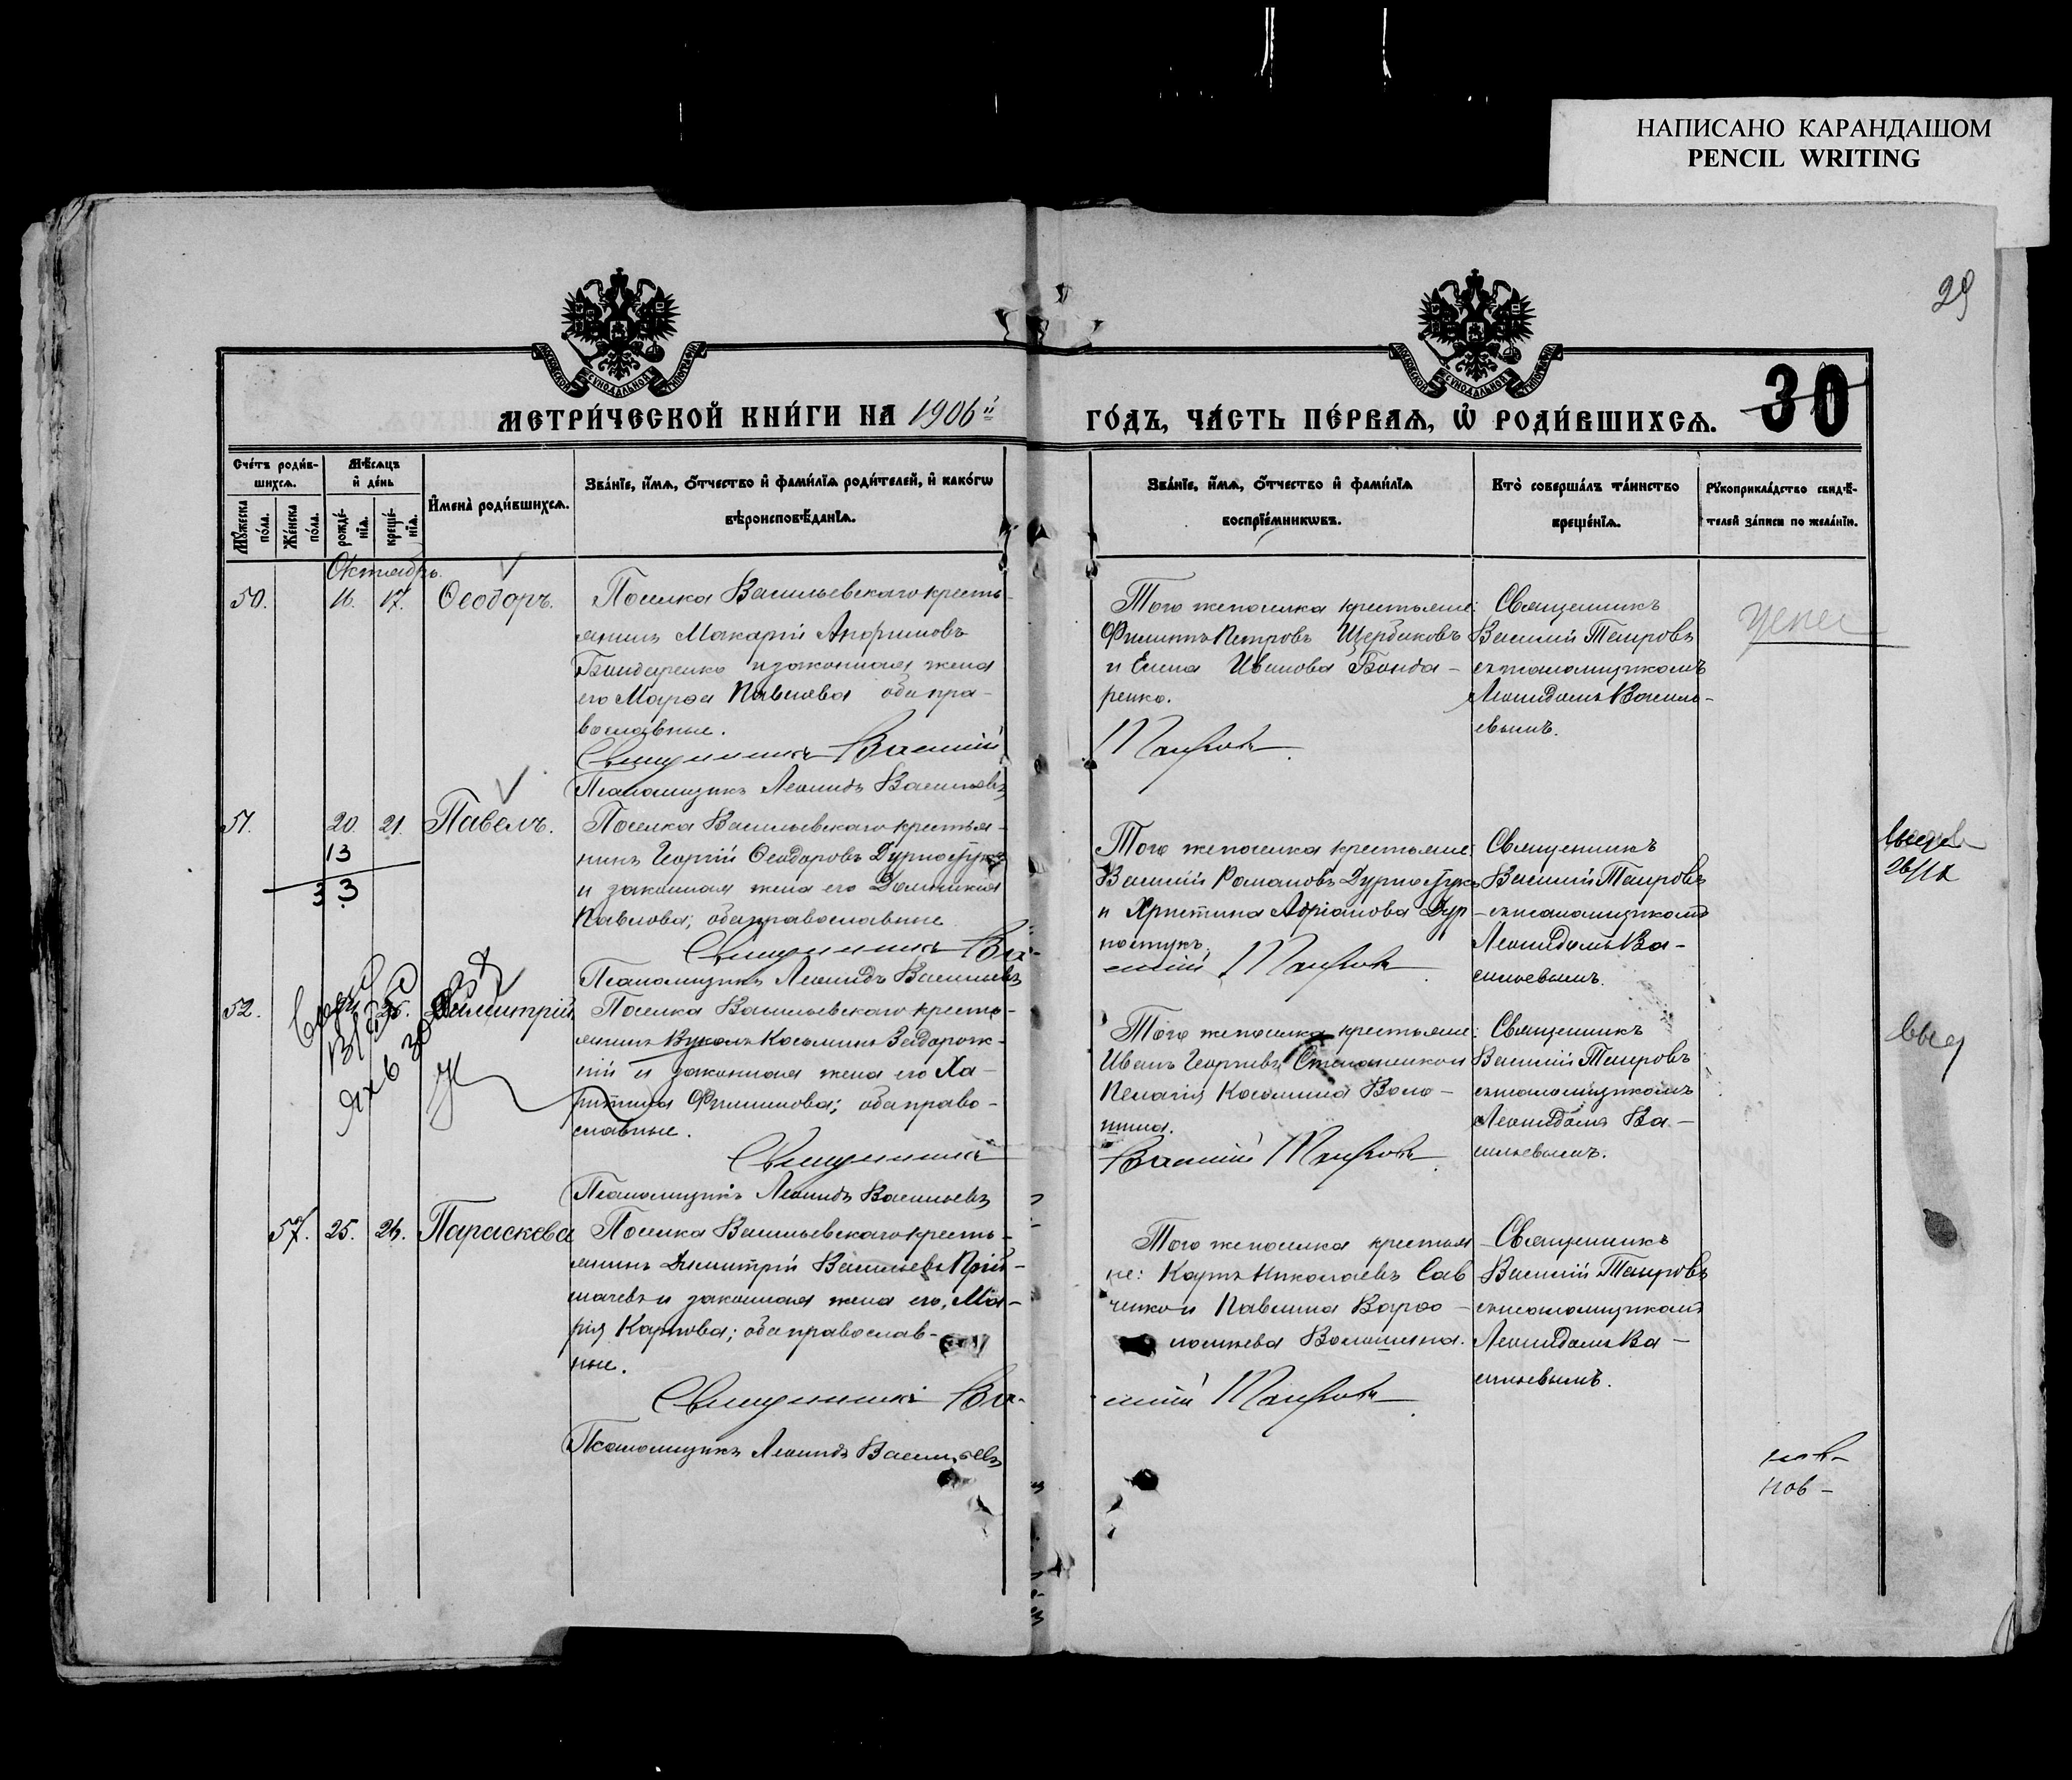 НАПИСАНО КАРАНДАШОМ
PENCIL WRITING
29
МЕТРИ́ЧЕСКОЙ КНИ́ГИ НА 1906й
ГО́ДЪ, ЧА́СТЬ ПЕ́РВАѦ, Ѡ҆ РОДИ́ВШИХСѦ.
30
Сче́тъ роди́в-
шихсѧ.
Мѣ́сѧцъ
и҆ де́нь
И҆мена̀ роди́вшихсѧ.
Зва́нїе, и҆́мѧ, ѻ҆́тчество и҆ фами́лїѧ роди́телей, и҆ како́гѡ
вѣроисповѣ́данїѧ.
Мꙋ́жеска
по́ла.
Же́нска
по́ла.
рожде́-
нїѧ.
креще́-
нїѧ.
Зва́нїе, и҆́мѧ, ѻ҆́тчество и҆ фами́лїѧ
воспрїе́мникѡвъ.
Кто̀ соверша́лъ та́инство
креще́нїѧ.
Рꙋкоприкла́дство свидѣ́-
телей за́писи по жела́нїю.
Октябрь.
50. 16. 17. Ѳеодоръ.
Поселка Васильевскаго кресть-
янинъ Макарій Анфимовъ
Бондаренко и законная жена
его Марѳа Павлова оба пра-
вославные.
Священникъ Василій
Псаломщикъ Леонидъ Васильевъ
Того же поселка крестьяне:
Филиппъ Петровъ Щербаковъ
и Елена Иванова Бонда-
ренко.
Таировъ
Священникъ
Василій Таировъ
съ псаломщикомъ
Леонидомъ Василь-
евымъ.
51. 20. 21. Павелъ.
13
33
Поселка Васильевскаго крестья-
нинъ Георгій Ѳеодоровъ Дурностукъ
и законная жена его Домникія
Павлова; оба православные
Священникъ Ва-
Псаломщикъ Леонидъ Васильевъ
Того же поселка крестьяне:
Василій Романовъ Дурностукъ
и Христина Адріанова Дур-
ностукъ.
силій Таировъ
Священникъ
Василій Таировъ
съ псаломщикомъ
Леонидомъ Ва-
сильевымъ.
26/IX
52. 25. Димитрій
Поселка Васильевскаго кресть-
янинъ Вуколъ Косьминъ Задорож-
ній и законная жена его Ха-
ритина Филиппова; оба право-
славные.
Священникъ
Псаломщикъ Леонидъ Васильевъ
Того же поселка крестьяне:
Иванъ Георгіевъ
Пелагія Косьмина Воло-
шина.
Василій Таировъ
Священникъ
Василій Таировъ
съ псаломщикомъ
Леонидомъ Ва-
сильевымъ.
выд
57. 25. 26. Параскева
Поселка Васильевскаго кресть-
янинъ Димитрій Васильевъ
и законная жена его, Ма-
рія Карпова; оба православ-
ные.
Священникъ Ва-
Псаломщикъ Леонидъ Васильевъ
Того же поселка крестья-
не: Карпъ Николаевъ Сав
ченко и Павлина Варѳо-
ломеева Волошина.
силій Таировъ
Священникъ
Василій Таировъ
съ псаломщикомъ
Леонидомъ Ва-
сильевымъ.
нов-